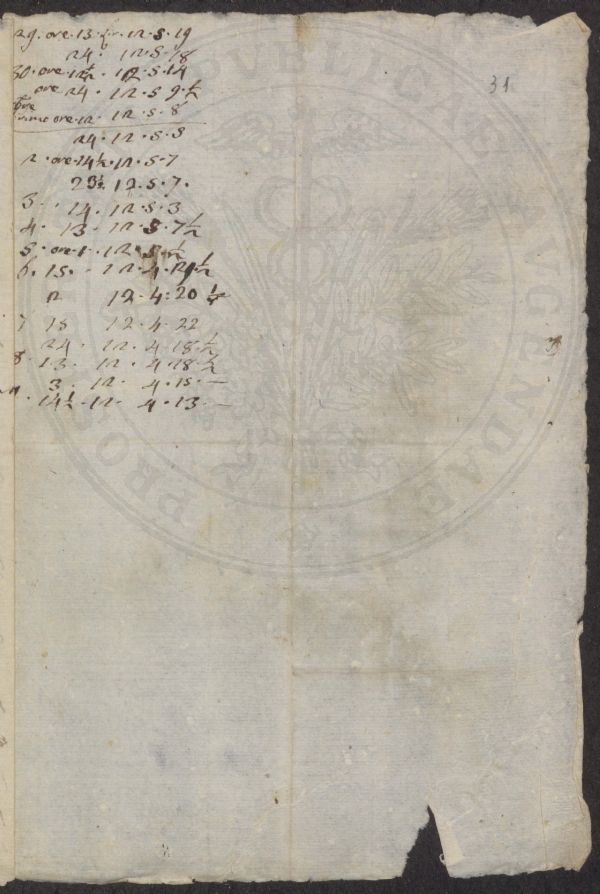 31
29. ore. 13. fu. 12. 5. 19
24. 12. 5. 18
30. ore 12 1/2. 12. 5. 14
ore 24. 12. 5 9. 1/2
ore. 12. 12. 5. 8
24. 12. 5. 5
2. ore. 14 1/2. 12. 5. 7
23 1/2. 12. 5. 7.
3. 14. 12. 5. 3
4. 13. 12. 5. 7 1/2
5. ore. 1. 12. 5. 1/2
6. 15. 12. 4. 21 1/2
12 12. 4. 20 1/2
7 15 12. 4. 22
24. 12. 4. 18. 1/2
8. 13. 12. 4. 18. 1/2
3. 12. 4. 15. —
14 1/2. 12 4. 13. —